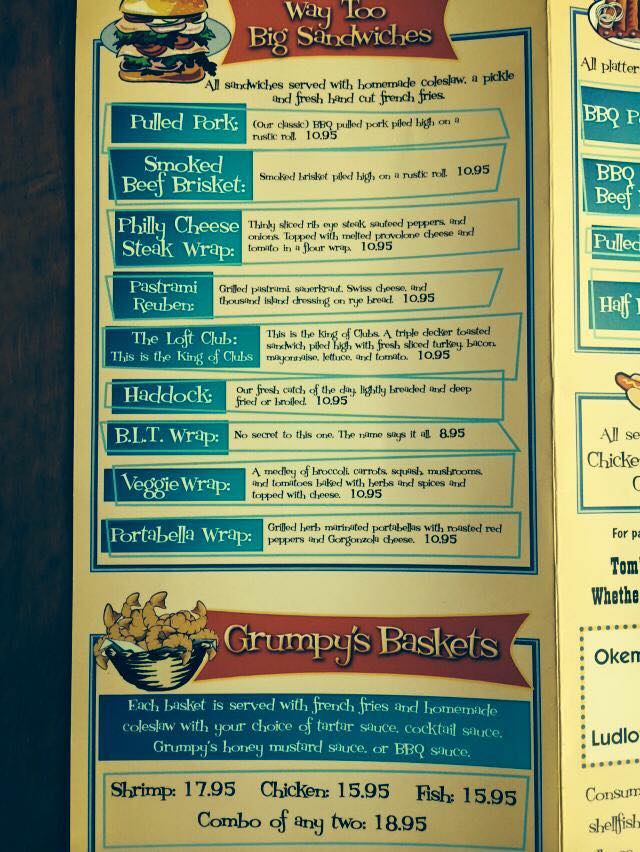 Way Too
Big Sandwiches
All sandwiches served with homemade coleslaw, a pickle
and fresh hand cut french fries.
Pulled Pork:
(Our classic) BBQ pulled pork piled high on a
rustic roll. 10.95
Smoked
Beef Brisket:
Smoked brisket piled high on a rustic roll. 10.95
Philly Cheese
Steak Wrap:
Thinly sliced rib eye steak, sauteed peppers, and
onions. Topped with melted provolone cheese and
tomato in a flour wrap. 10.95
Pastrami
Reuben:
Grilled pastrami, sauerkraut, Swiss cheese, and
thousand island dressing on rye bread. 10.95
The Loft Club:
This is the King of Clubs
This is the King of Clubs. A triple decker toasted
sandwich piled high with fresh sliced turkey, bacon,
mayonnaise, lettuce, and tomato. 10.95
Haddock:
Our fresh catch of the day, lightly breaded and deep
fried or broiled. 10.95
B.L.T. Wrap:
No secret to this one. The name says it all. 8.95
Veggie Wrap:
A medley of broccoli, carrots, squash, mushrooms,
and tomatoes baked with herbs and spices and
topped with cheese. 10.95
Portabella Wrap:
Grilled herb marinated portabellas with roasted red
peppers and Gorgonzola cheese. 10.95
Grumpy's Baskets
Each basket is served with french fries and homemade
coleslaw with your choice of tartar sauce, cocktail sauce,
Grumpy's honey mustard sauce, or BBQ sauce.
Shrimp: 17.95 Chicken: 15.95 Fish: 15.95
Combo of any two: 18.95
All platter
BBQ P
BBQ
Beef
Pulled
Half
All se
Chicke
For pa
Tom'
Whethe
Okem
Ludlo
Consum
shellfish